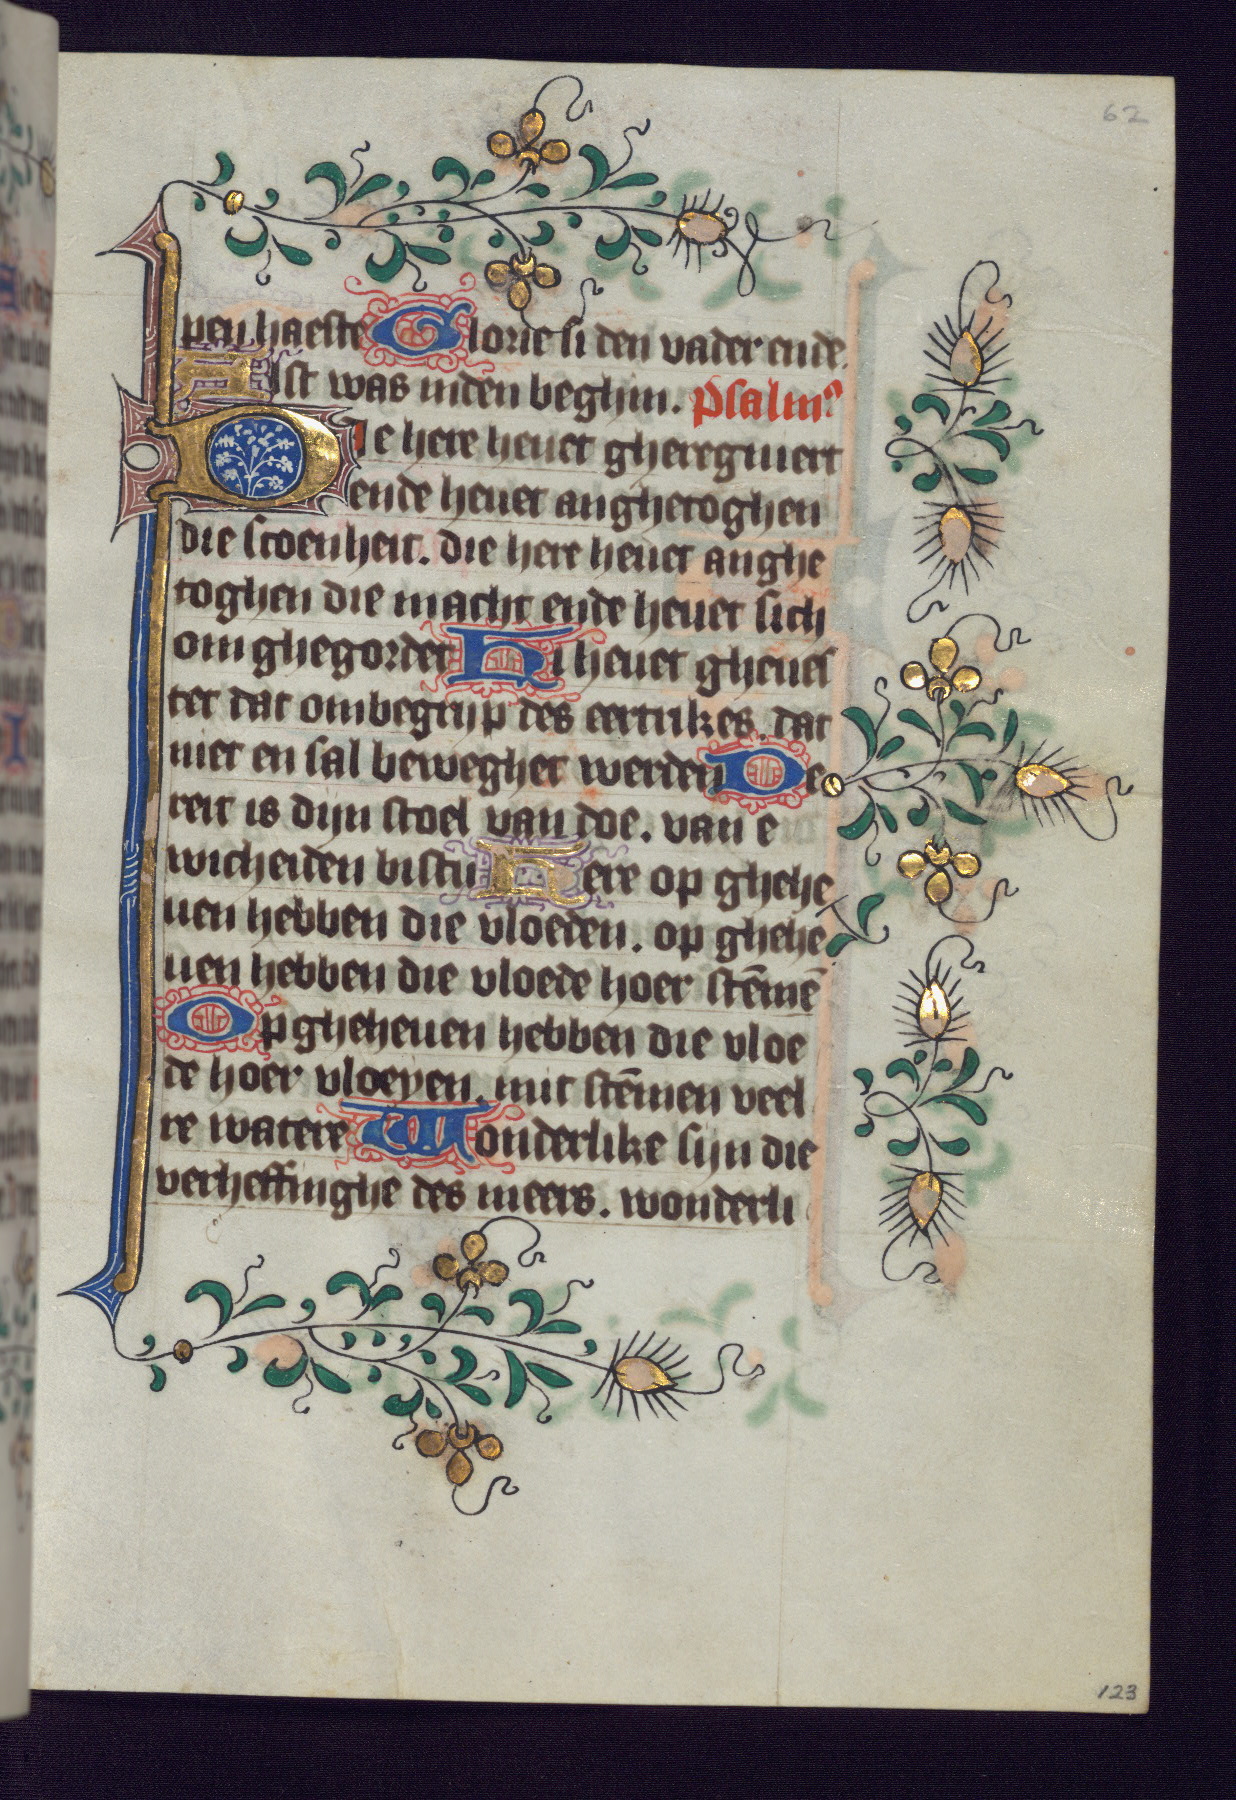 62
pen haeste Glorie si den vader ende.
Alst was inden beghin. Psalm⁹
Die here heuet gheregniert
ende heuet angetoghen
die scoenheit. die here heuet anghe
toghen die macht ende heuet sich
om ghegordet Hi heuet gheues
tet dat ombegrijp des eertrikes. dat
niet en sal beweghet werden Be
reit is dijn stoel van doe. van e
wicheiden bistu Here op ghehe
uen hebben die vloeden. op ghehe
uen hebben die vloede hoer stēmē
Op gheheuen hebben die vloe
de hoer vloeyen. mit stēmen veel
re watere Wonderlike sijn die
verheffinghe des meers. wonderli
123